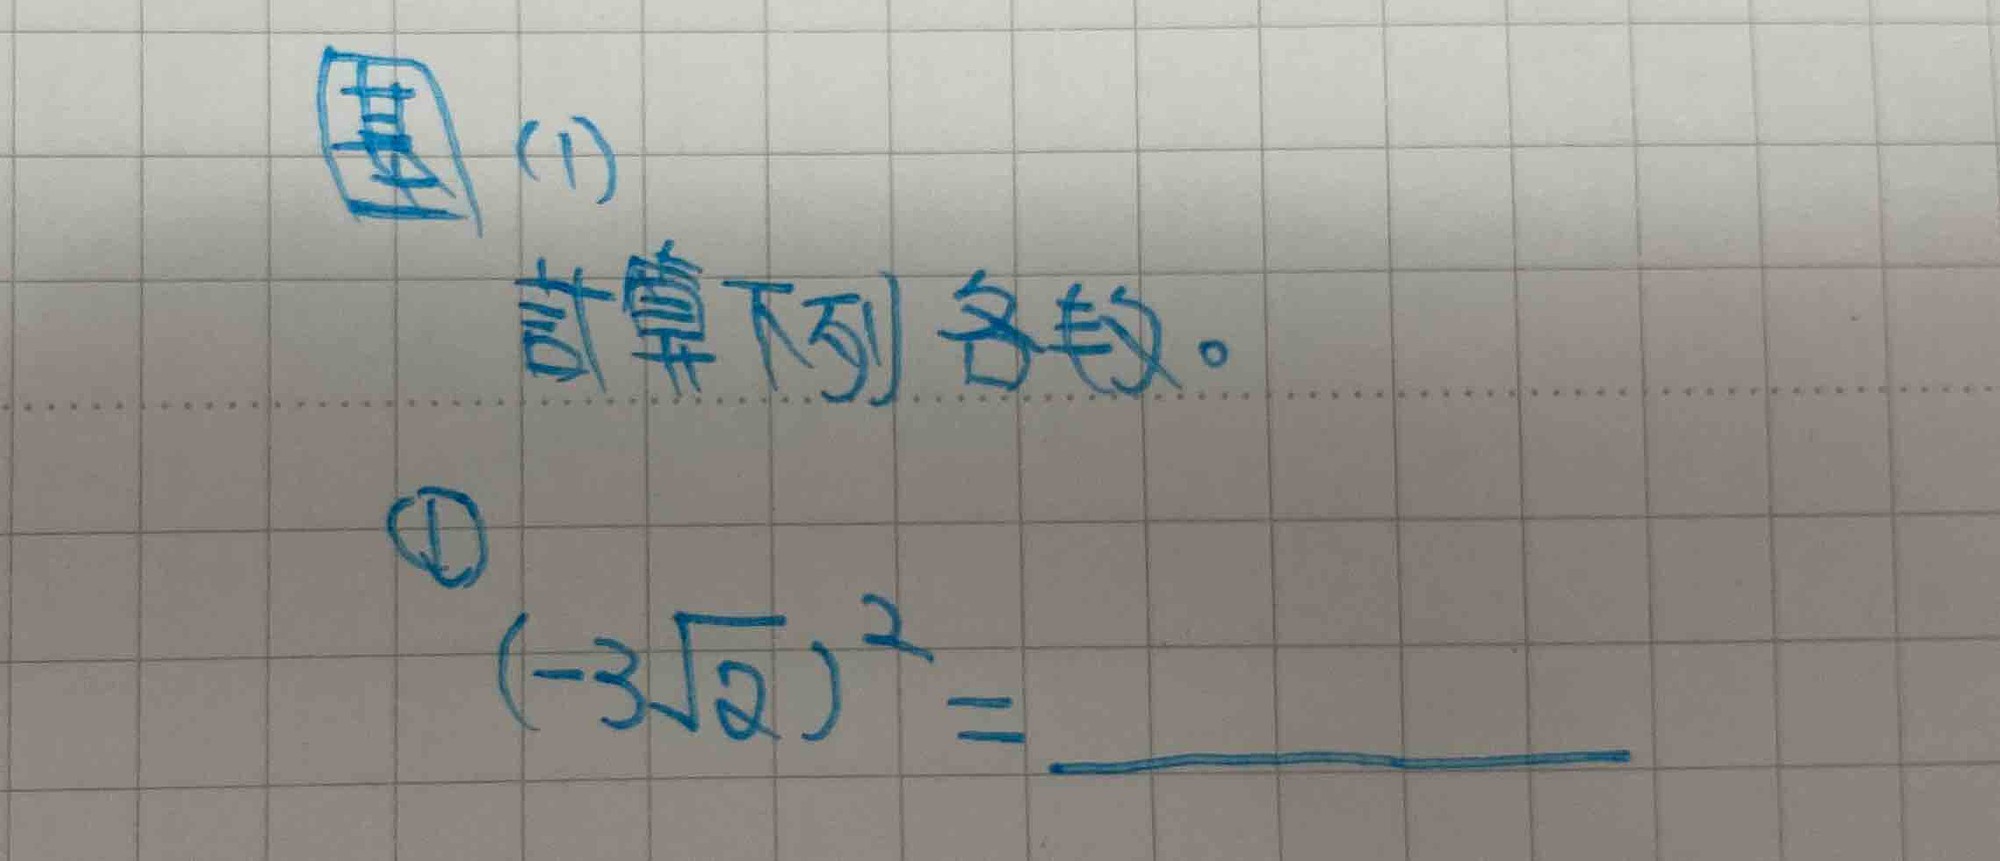 基 (1)
計算下列各段。
①
(-3√2)² = ______